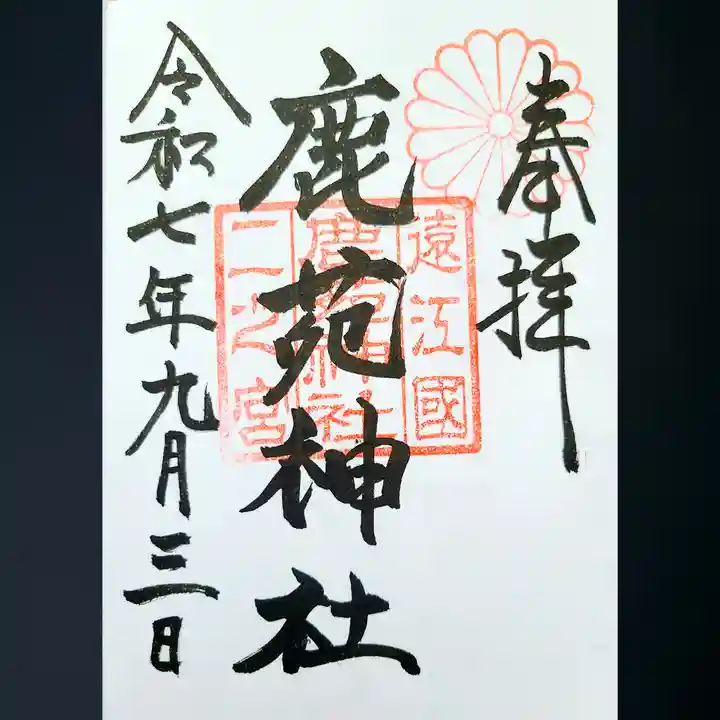 奉拝
遠江國
鹿苑神社
二之宮
鹿苑神社
令和七年九月三日